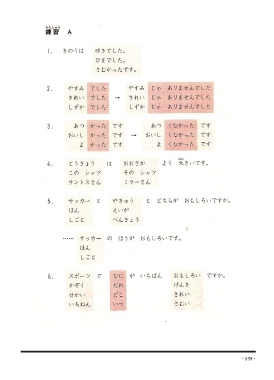 れんしゅう
練習 A
1. きのうは ゆきでした。
ひまでした。
さむかったです。
2. やすみ でした → やすみ じゃ ありませんでした
きれい でした きれい じゃ ありませんでした
しずか でした しずか じゃ ありませんでした
3. あつ かった です → あつ くなかった です
おいし かった です おいし くなかった です
よ かった です よ くなかった です
4. とうきょう は おおさか より 大きいです。
この シャツ その シャツ
サントスさん ミラーさん
5. サッカー と やきゅう と どちらが おもしろいですか。
ほん えいが
しごと べんきょう
…… サッカー の ほうが おもしろいです。
ほん
しごと
6. スポーツ で なに が いちばん おもしろい ですか。
かぞく だれ げんき
せかい どこ きれい
いちねん いつ さむい